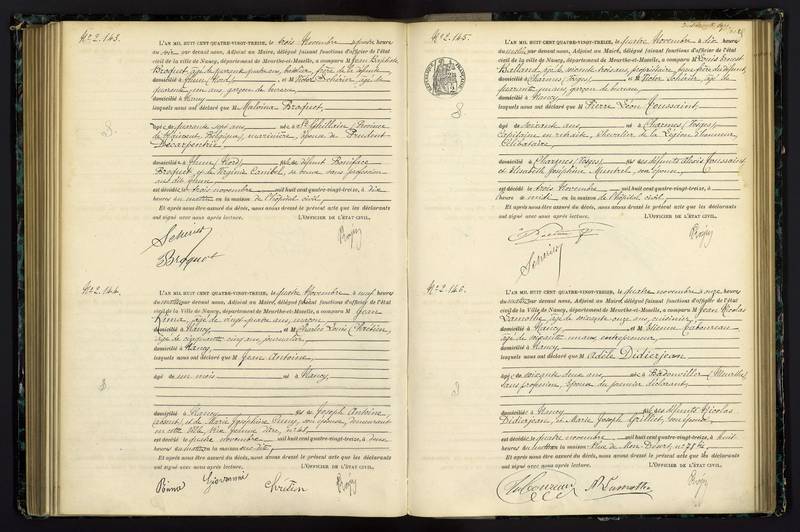 No 2.143.
L'AN MIL HUIT CENT QUATRE-VINGT-TREIZE, le trois Novembre à quatre heures
du soir par devant nous, Adjoint au Maire, délégué faisant fonctions d'officier de l'état
civil de la ville de Nancy, département de Meurthe-et-Moselle, a comparu M Jean Baptiste
Broquet, âgé de quarante quatre ans, batelier, frère de la défunte
domicilié à Thun (Nord), et M Victor Schérier âgé de
quarante un ans, garçon de bureau,
domicilié à Nancy
lesquels nous ont déclaré que M Malvina Broquet,
âgée de quarante sept ans, née à St Ghislain (Province
de Hainaut, Belgique), marinière, épouse de Prudent
Decarpentrie,
domiciliée à Thun (Nord), fille de défunt Boniface
Broquet, et de Virginie Cambel, sa veuve sans profession
audit Thun
est décédée le trois novembre mil huit cent quatre-vingt-treize, à dix
heures du matin en la maison de l'hôpital civil,
Et après nous être assuré du décès, nous avons dressé le présent acte que les déclarants
ont signé avec nous après lecture. L'OFFICIER DE L'ÉTAT CIVIL,
Broquet
No 2.144.
L'AN MIL HUIT CENT QUATRE-VINGT-TREIZE, le quatre Novembre à neuf heures
du matin par devant nous, Adjoint au Maire, délégué faisant fonctions d'officier de l'état
civil de la Ville de Nancy, département de Meurthe-et-Moselle, a comparu M Jean
âgé de vingt quatre ans, maçon
domicilié à Nancy et M Charles Louis Chrétien
âgé de cinquante cinq ans, journalier
domicilié à Nancy,
lesquels nous ont déclaré que M Jean Antoine,
âgé de un mois né à Nancy,
domicilié à Nancy fils de Joseph Antoine
(absent) et de Marie Joséphine son épouse, demeurant
en cette ville
est décédé le quatre novembre mil huit cent quatre-vingt-treize, à deux
heures du matin en la maison sus dite,
Et après nous être assuré du décès, nous avons dressé le présent acte que les déclarants
ont signé avec nous après lecture. L'OFFICIER DE L'ÉTAT CIVIL,
No 2.145.
L'AN MIL HUIT CENT QUATRE-VINGT-TREIZE, le quatre Novembre à dix heures
du matin par devant nous, Adjoint au Maire, délégué faisant fonctions d'officier de l'état
civil de la ville de Nancy, département de Meurthe-et-Moselle, a comparu M Louis Ernest
Balland, âgé de soixante trois ans, propriétaire, beau frère du défunt,
domicilié à Charmes (Vosges), et M Victor Schérier âgé de
quarante un ans, garçon de bureau,
domicilié à Nancy
lesquels nous ont déclaré que M Pierre Léon Toussaint,
âgé de soixante ans né à Charmes (Vosges)
Capitaine en retraite, chevalier de la Légion d'honneur,
Célibataire,
domicilié à Charmes (Vosges) fils des défunts Alexis Toussaint
et Elisabeth Joséphine son épouse,
est décédé le trois Novembre mil huit cent quatre-vingt-treize, à
heure en la maison de l'hôpital civil,
Et après nous être assuré du décès, nous avons dressé le présent acte que les déclarants
ont signé avec nous après lecture. L'OFFICIER DE L'ÉTAT CIVIL,
No 2.146.
L'AN MIL HUIT CENT QUATRE-VINGT-TREIZE, le quatre novembre à onze heures
du matin par devant nous, Adjoint au Maire, délégué faisant fonctions d'officier de l'état
civil de la Ville de Nancy, département de Meurthe-et-Moselle, a comparu M Jean Nicolas
Lamothe, âgé de soixante onze ans, cuisinier,
domicilié à Nancy et M Etienne
âgé de soixante un ans, entrepreneur,
domicilié à Nancy,
lesquels nous ont déclaré que M Adèle Didierjean
âgée de soixante deux ans, née à Badonviller (Meurthe),
sans profession, épouse du premier déclarant
domiciliée à Nancy fille des défunts Nicolas
Didierjean, et Marie Joseph Grillet, son épouse,
est décédée le quatre novembre mil huit cent quatre-vingt-treize, à huit
heures du matin en la maison Place de Mon Désert,
Et après nous être assuré du décès, nous avons dressé le présent acte que les déclarants
ont signé avec nous après lecture. L'OFFICIER DE L'ÉTAT CIVIL,